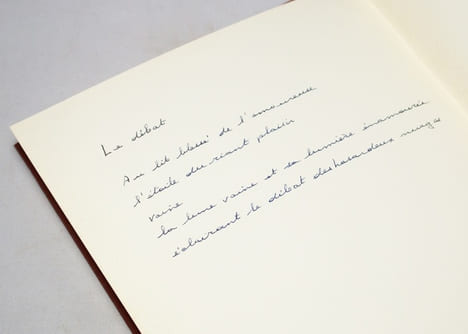 Le débat
Au lit blessé de l'amoureuse
l'étoile du riant plaisir
vaine
la lune vaine et sa lumière énamourée
éclairent le débat des hasardeux nuages